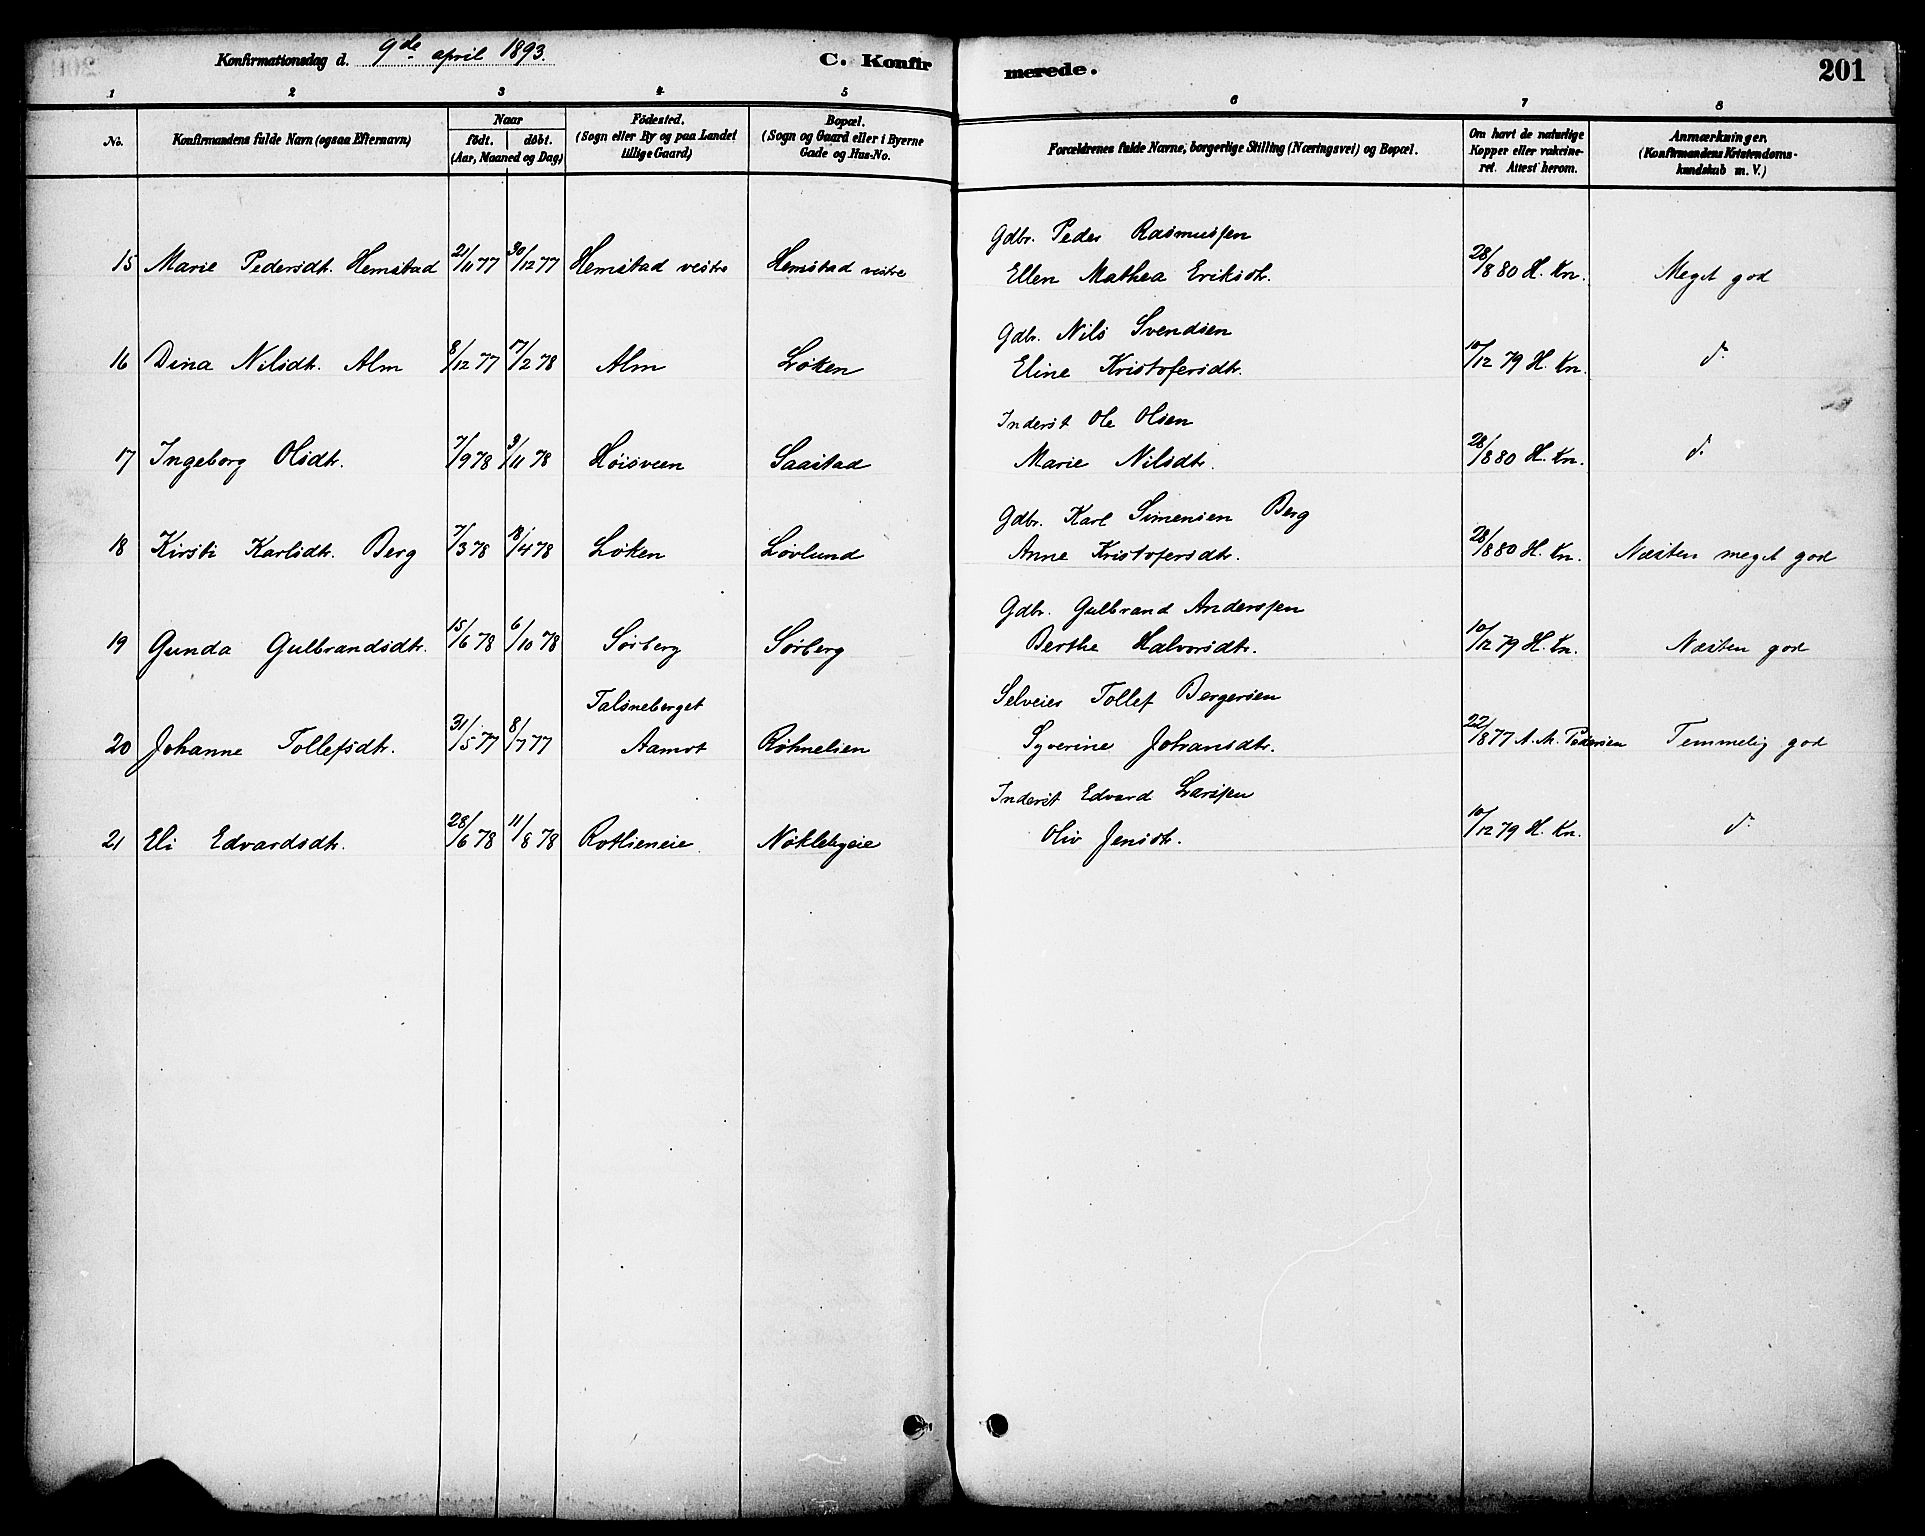 Konfirmationsdag d. 9de april 1893. C. Konfirmerede. 201
1 2 3 4 5 6 7 8
No. Konfirmandens fulde Navn (ogsaa Efternavn) Naar født. døbt. (Aar, Maaned og Dag) Fødested. (Sogn eller By og paa Landet tillige Gaard) Bopæl. (Sogn og Gaard eller i Byerne Gade og Hus-No. Forældrenes fulde Navne, borgerlige Stilling (Næringsvei) og Bopæl. Om havt de naturlige Kopper eller vakcineret. Attest herom. Anmærkninger. (Konfirmandens Kristendomskundskab m. V.)
Gdbr. Peder Rasmussen
15 Marie Pedersdt. Hemstad 21/11 77 30/12 77 Hemstad vestre Hemstad vestre Ellen Mathea Eriksdt. 28/8 80 H. Kn. Meget god
Gdbr. Nils Svendsen
16 Dina Nilsdt. Alm 8/12 77 17/2 78 Alm Løken Eline Kristofersdt. 10/12 79 H. Kn. do
Inderst Ole Olsen
17 Ingeborg Olsdt. 7/9 78 3/11 78 Høisveen Saastad Marie Nilsdt. 28/8 80 H. Kn. do
Gdbr. Karl Simensen Berg
18 Kirsti Karlsdt. Berg 7/3 78 /4 78 Løken Løvlund Anne Kristofersdt. 28/8 80 H. Kn. Næsten meget god
Gdbr. Gulbrand Anderssen
19 Gunda Gulbrandsdt. 15/6 78 6/10 78 Sørberg Sørberg Berthe Halvorsdt. 10/12 79 H. Kn. Næsten god
Talsneberget Selveier Tollef Bergersen
20 Johanne Tollefsdt. 31/5 77 8/7 77 Aamot Røhnelien Syverine Johansdt. 22/8 77 A. M. Pedersen Temmelig god
Inderst Edvard Larssen
21 Eli Edvardsdt. 28/6 78 11/8 78 Rotlieneie Nøklebyeie Oliv Jensdt. 10/12 79 H. Kn. do